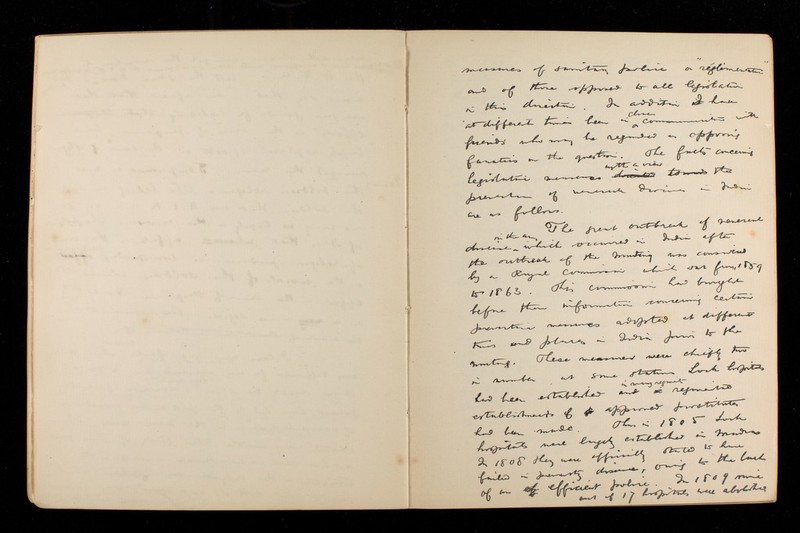 measures of sanitary police or "réglementation"
and of those opposed to all legislation
in this direction. In addition I have
at different times been in close communication with
friends who may be regarded as opposing
fanatics on the question. The facts concerning
legislative measures with a view to the
prevention of venereal diseases in India
are as follows.
The great outbreak of venereal
disease in the army which occurred in India after
the outbreak of the Mutiny was considered
by a Royal Commission which sat from 1859
to 1863. This commission had brought
before them information concerning certain
preventive measures adopted at different
times and places in India prior to the
mutiny. These measures were chiefly two
in number. at some stations Lock hospitals
had been established and in many regiments regimental
establishments of approved prostitutes
had been made. Thus in 1805 Lock
hospitals were largely established in Madras
In 1808 they were officially stated to have
failed in preventing disease, owing to the lack
of an efficient police. In 1809 nine
out of 17 hospitals were abolished